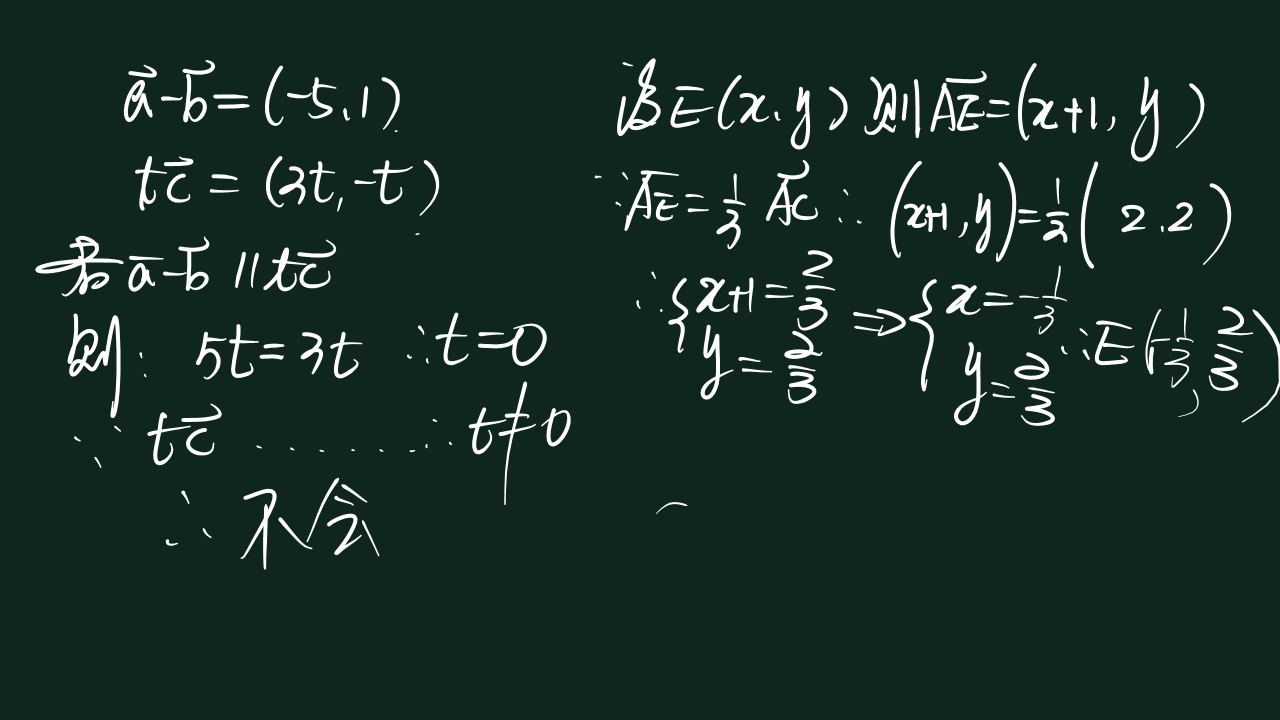 a⃗-b⃗=(-5,1)
tc⃗=(3t,-t)
若a⃗-b⃗∥tc⃗
则: 5t=3t ∴t=0
∵ tc⃗ ....... ∴t≠0
∴不会
设E(x,y) 则AE⃗=(x+1,y)
∵AE⃗=1/3 AC⃗ ∴(x+1,y)=1/3(2,2)
∴{x+1=2/3 y=2/3 ⇒{x=-1/3 y=2/3 ∴E(-1/3,2/3)